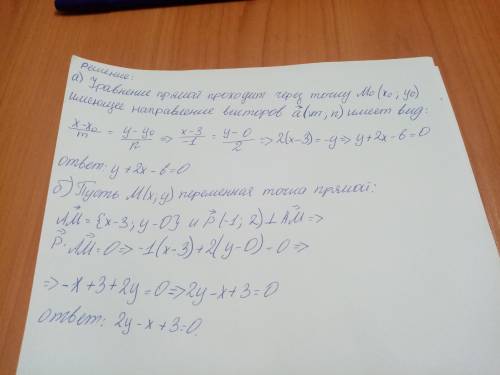 Решение:
а) Уравнение прямой проходит через точку M₀(x₀, y₀)
имеющее направление вектора a⃗(m, n) имеет вид:
(x-x₀)/m = (y-y₀)/n => (x-3)/-1 = (y-0)/2 => 2(x-3)=-y => y+2x-6=0
ответ: y+2x-6=0
б) Пусть M(x, y) переменная точка прямой:
AM⃗ = {x-3; y-0} и p⃗(-1; 2) ⊥ AM⃗ =>
p⃗·AM⃗=0 => -1(x-3)+2(y-0)-0 =>
=> -x+3+2y=0 => 2y-x+3=0
ответ: 2y-x+3=0.